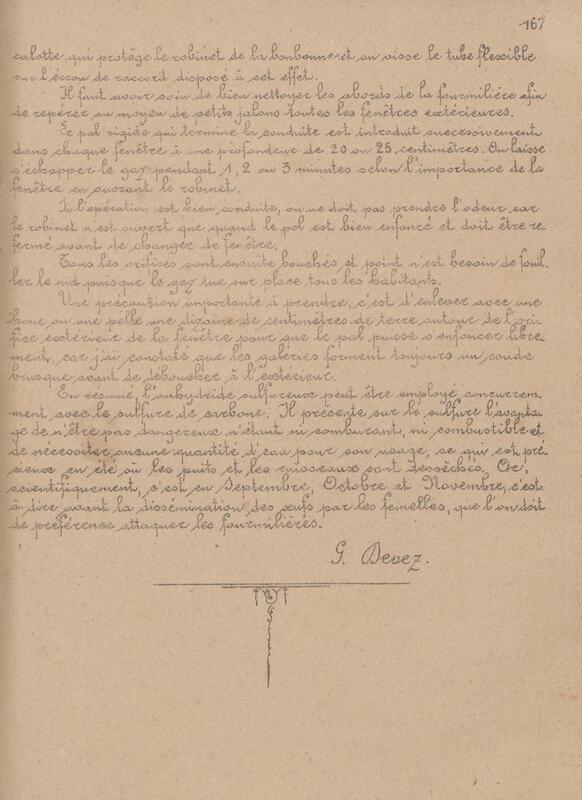 167
calotte qui protège le robinet de la bonbonne et on visse le tube flexcible
sur l'écrou de raccord disposé à cet effet.
Il faut avoir soin de bien nettoyer les abords de la fourmilière afin
de repérer au moyen de petits jalons toutes les fenêtres extérieures.
Le pal rigide qui termine la conduite est introduit successivement
dans chaque fenêtre à une profondeur de 20 ou 25 centimètres. On laisse
s'échapper le gaz pendant 1, 2 ou 3 minutes selon l'importance de la
fenêtre en ouvrant le robinet.
Si l'opération est bien conduite, on ne doit pas prendre l'odeur car
le robinet n'est ouvert que quand le pal est bien enfoncé et doit être re
fermé avant de changer de fenêtre.
Tous les orifices sont ensuite bouchés et point n'est besoin de fouil-
ler le nid puisque le gaz tue sur place tous les habitants.
Une précaution importante à prendre, c'est d'enlever avec une
houe ou une pelle une dizaine de centimètres de terre autour de l'ori-
fice extérieur de la fenêtre pour que le pal puisse s'enfoncer libre-
ment, car j'ai constaté que les galeries forment toujours un coude
brusque avant de déboucher à l'extérieur.
En résumé, l'anhydride sulfureux peut être employé concurrem-
ment avec le sulfure de carbone. Il présente sur le sulfure l'avanta-
ge de n'être pas dangereux n'étant ni comburant, ni combustible et
de nécessiter aucune quantité d'eau pour son usage, ce qui est pré-
sieux en été où les puits et les ruisseaux sont desséchés. Or,
scientifiquement, c'est en Septembre, Octobre et Novembre, c'est
à dire avant la dissémination des œufs par les femelles, que l'on doit
de préférence attaquer les fourmilières.
G. Devez.